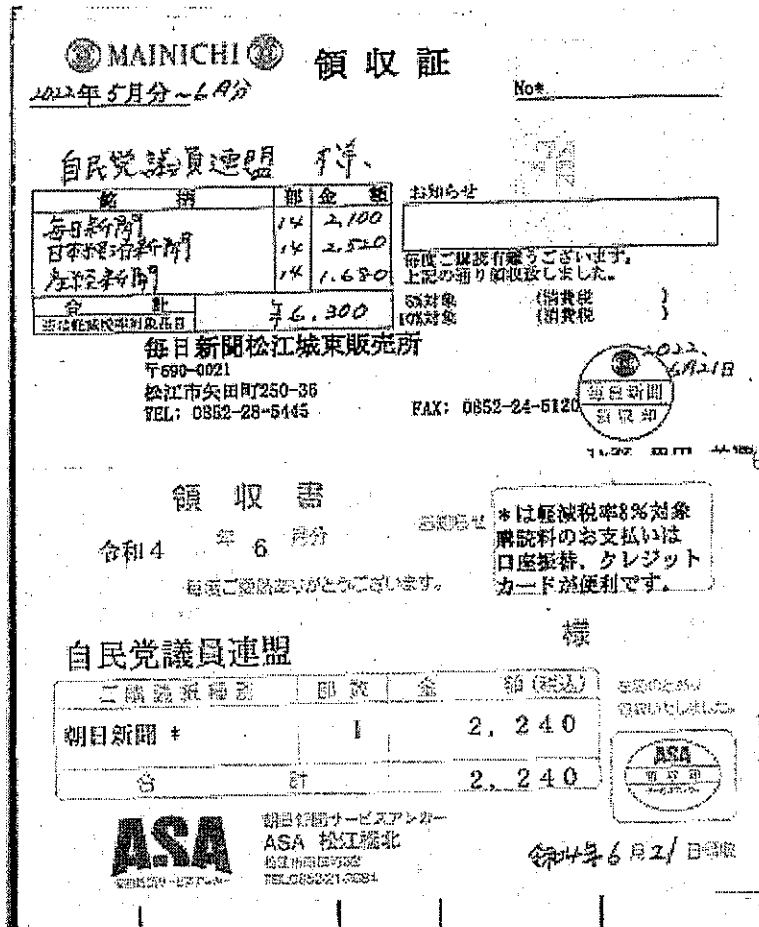 MAINICHI 領収証
2022年5月分~6月分
No*
自民党議員連盟 様
銘柄 部 金額
毎日新聞 14 2,100
日本経済新聞 14 2,520
産経新聞 14 1,680
合計 ¥6,300
お知らせ
毎度ご購読有難うございます。
上記の通り領収致しました。
8%対象 (消費税 )
10%対象 (消費税 )
毎日新聞松江城東販売所
〒690-0021
松江市矢田町250-36
TEL: 0852-28-5445 FAX: 0852-24-5120
2022.
6月21日
毎日新聞
領収印
領収書
令和4年6月分
お知らせ
*は軽減税率8%対象
購読料のお支払いは
口座振替、クレジット
カードが便利です。
毎度ご購読ありがとうございます。
自民党議員連盟 様
ご購読紙種別 部数 金額(税込)
朝日新聞 * 1 2,240
合計 2,240
左記のとおり
領収いたしました。
ASA
領収印
ASA
朝日新聞サービスアンカー
朝日新聞サービスアンカー
ASA 松江橋北
令和4年6月21日領収